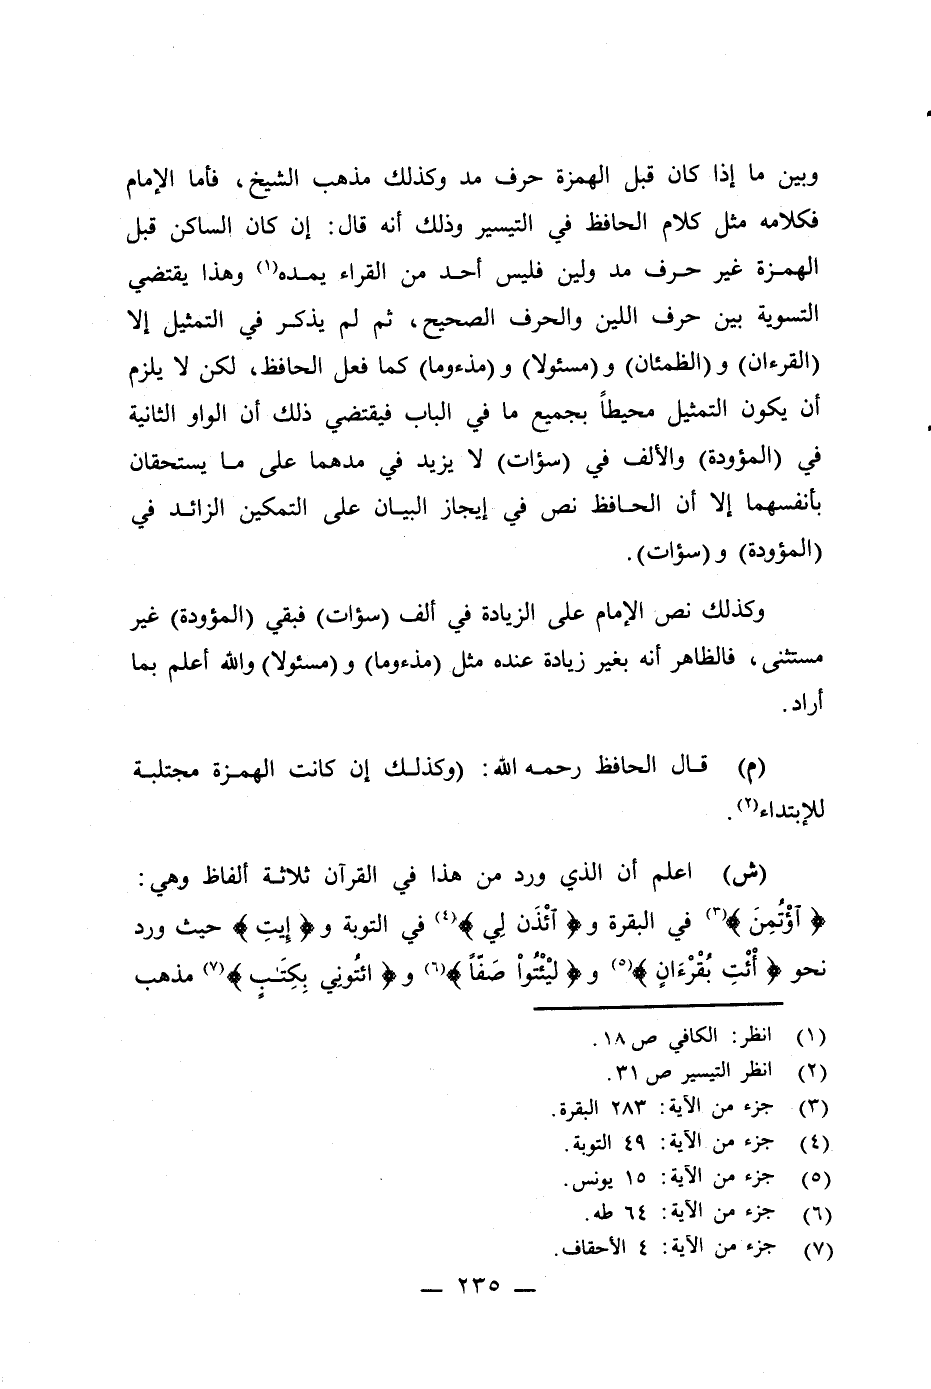 وبين ما إذا كان قبل الهمزة حرف مد وكذلك مذهب الشيخ، فأما الإمام
فكلامه مثل كلام الحافظ في التيسير وذلك أنه قال: إن كان الساكن قبل
الهمزة غير حرف مد ولين فليس أحد من القراء يمده(١) وهذا يقتضي
التسوية بين حرف اللين والحرف الصحيح، ثم لم يذكر في التمثيل إلا
(القرءان) و (الظمئان) و (مسئولا) و (مذءوما) كما فعل الحافظ، لكن لا يلزم
أن يكون التمثيل محيطاً بجميع ما في الباب فيقتضي ذلك أن الواو الثانية
في (المؤودة) والألف في (سؤات) لا يزيد في مدهما على ما يستحقان
بأنفسهما إلا أن الحافظ نص في إيجاز البيان على التمكين الزائد في
(المؤودة) و (سؤات).
وكذلك نص الإمام على الزيادة في ألف (سؤات) فبقي (المؤودة) غير
مستثنى، فالظاهر أنه بغير زيادة عنده مثل (مذءوما) و (مسئولا) والله أعلم بما
أراد.
(م) قال الحافظ رحمه الله: (وكذلك إن كانت الهمزة مجتلبة
للإبتداء(٢).
(ش) اعلم أن الذي ورد من هذا في القرآن ثلاثة ألفاظ وهي:
﴿ آؤْتُمِنَ ﴾(٣) في البقرة و ﴿ آئْذَن لِي ﴾(٤) في التوبة و ﴿ إِيتِ ﴾ حيث ورد
نحو ﴿ أْئْتِ بُقْرْءَانٍ ﴾(٥) و ﴿ لَيْئْتُواْ صَفّاً ﴾(٦) و ﴿ ائتُونِي بِكِتَـٰبٍ ﴾(٧) مذهب
(١) انظر: الكافي ص ١٨.
(٢) انظر التيسير ص ٣١.
(٣) جزء من الآية: ٢٨٣ البقرة.
(٤) جزء من الآية: ٤٩ التوبة.
(٥) جزء من الآية: ١٥ يونس.
(٦) جزء من الآية: ٦٤ طه.
(٧) جزء من الآية: ٤ الأحقاف.
— ٢٣٥ —